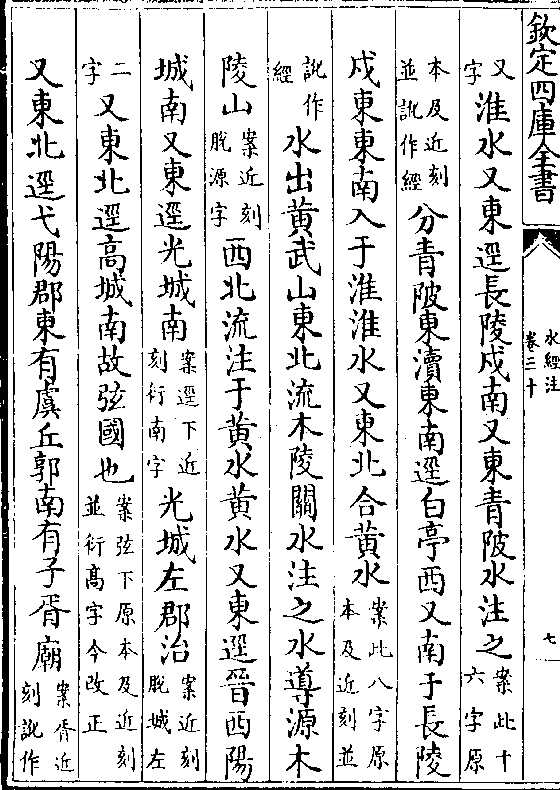 欽定四庫全書
水經注
卷三十
七
又字淮水又東逕長陵戍南又東青陂水注之案此十六字原
本及近刻並訛作經分青陂東瀆東南逕白亭西又南于長陵
戍東東南入于淮淮水又東北合黃水案此八字原本及近刻並
訛作經水出黃武山東北流木陵關水注之水導源木
陵山案近刻脫源字西北流注于黃水黃水又東逕晉西陽
城南又東逕光城南案逕下近刻衍南字光城左郡治案近刻脫城左
二字又東北逕高城南故弦國也案弦下原本及近刻並衍高字今改正
又東北逕弋陽郡東有虞丘郭南有子胥廟案胥近刻訛作